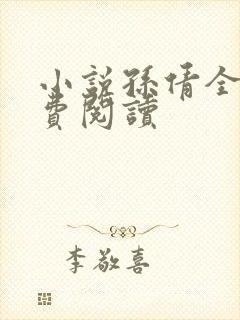 小説孫倩全
費閱讀
李敬喜